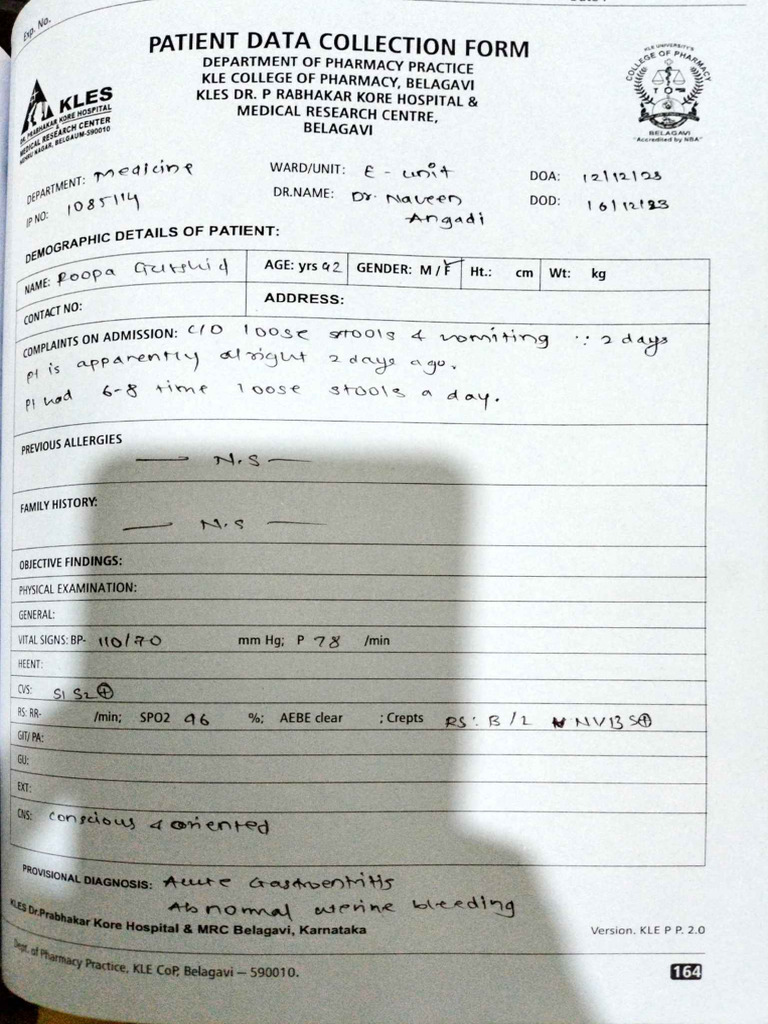 Exp. No.
PATIENT DATA COLLECTION FORM
DEPARTMENT OF PHARMACY PRACTICE
KLE COLLEGE OF PHARMACY, BELAGAVI
KLES DR. P RABHAKAR KORE HOSPITAL &
MEDICAL RESEARCH CENTRE,
BELAGAVI
KLES
DR. PRABHAKAR KORE HOSPITAL
&
MEDICAL RESEARCH CENTER
NEHRU NAGAR, BELGAUM-590010
KLE UNIVERSITY'S
COLLEGE OF PHARMACY
BELAGAVI
"Accredited by NBA"
DEPARTMENT: Medicine WARD/UNIT: E-unit DOA: 12/12/23
IP NO: 1085114 DR.NAME: Dr. Naveen Angadi DOD: 16/12/23
DEMOGRAPHIC DETAILS OF PATIENT:
NAME: Roopa AGE: yrs 42 GENDER: M / F Ht.: cm Wt: kg
CONTACT NO: ADDRESS:
COMPLAINTS ON ADMISSION: C/O loose stools & vomiting ∵ 2 days
pt is apparently alright 2 days ago.
Pt had 6-8 time loose stools a day.
PREVIOUS ALLERGIES
— N.S —
FAMILY HISTORY:
— N.S —
OBJECTIVE FINDINGS:
PHYSICAL EXAMINATION:
GENERAL:
VITAL SIGNS: BP- 110/70 mm Hg; P 78 /min
HEENT:
CVS: S1 S2 ⊕
RS: RR- /min; SPO2 96 %; AEBE clear ; Crepts RS: B/L NVBS⊕
GIT/ PA:
GU:
EXT:
CNS: conscious & oriented
PROVISIONAL DIAGNOSIS: Acute Gastroentritis
Abnormal uterine bleeding
KLES Dr.Prabhakar Kore Hospital & MRC Belagavi, Karnataka Version. KLE P P. 2.0
Dept. of Pharmacy Practice, KLE CoP, Belagavi – 590010.
164